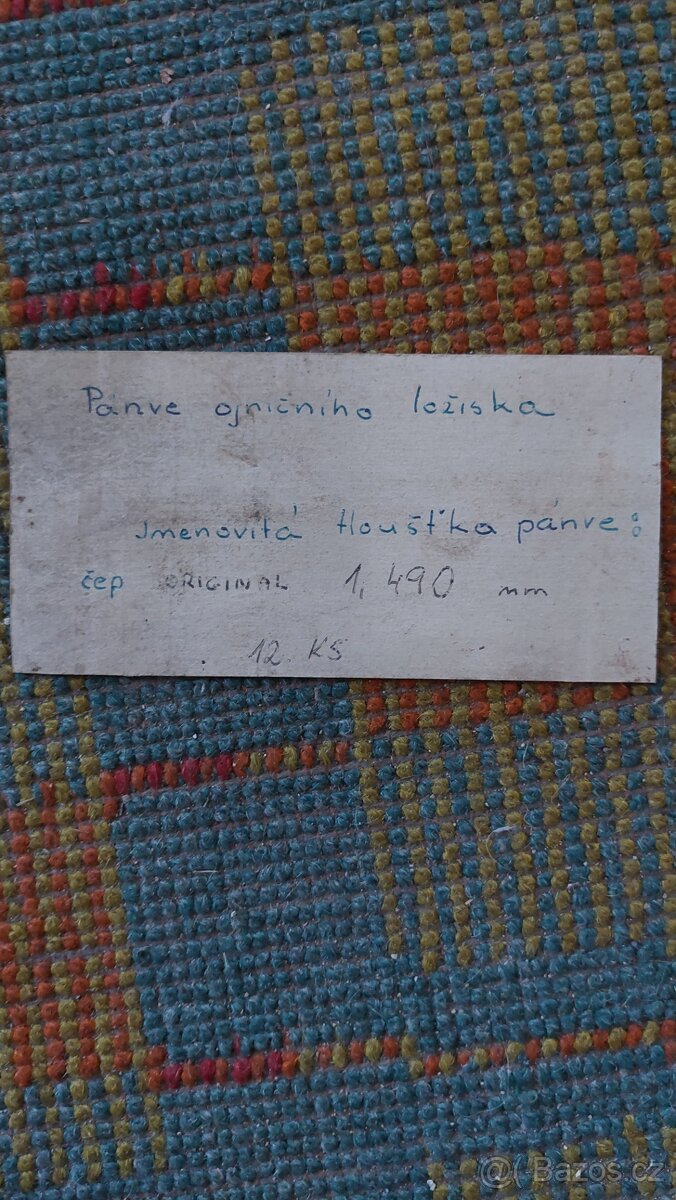 Pánve ojničního ložiska
Jmenovitá tloušťka pánve:
čep ORIGINAL 1,490 mm
12 KS
@( Bazos.cz